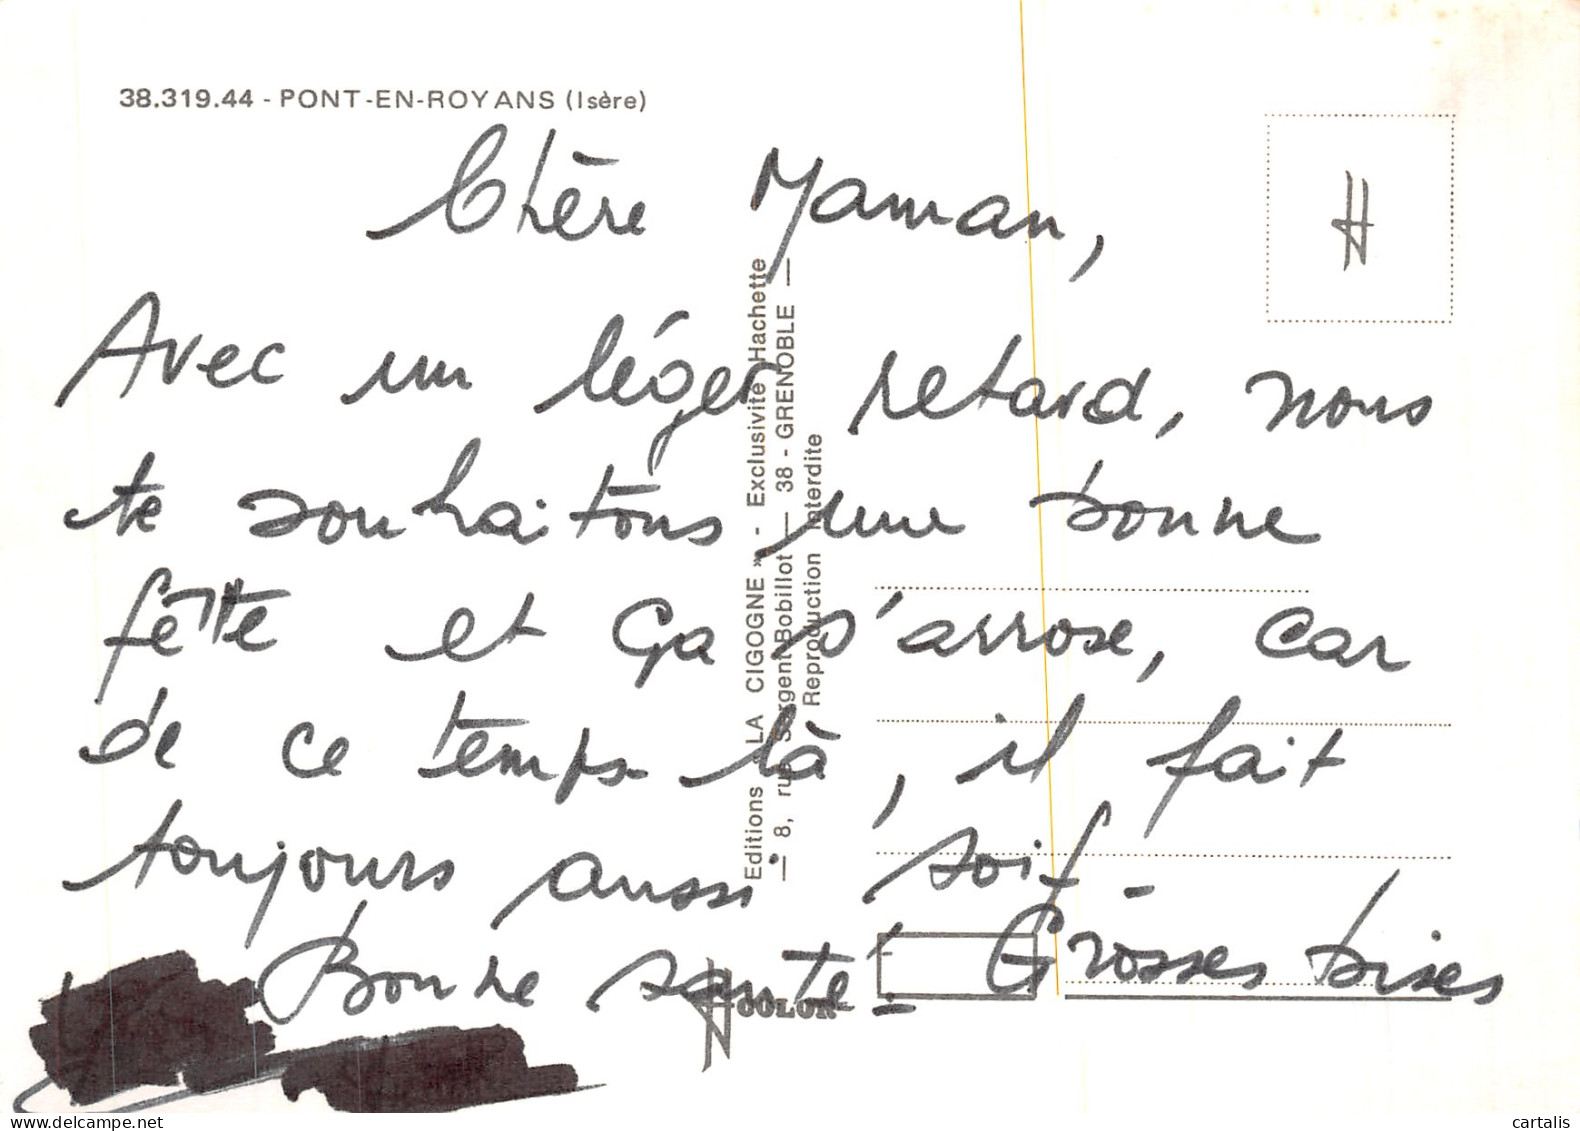 38.319.44 - PONT-EN-ROYANS (Isère)
Chère Maman,
Avec un léger retard, nous
te souhaitons une bonne
fête et ça s'arrose, car
de ce temps-là, il fait
toujours aussi soif.
Bonne santé! Grosses bises
Editions LA CIGOGNE » - Exclusivité Hachette
— 8, rue Sergent Bobillot — 38 - GRENOBLE —
Reproduction Interdite
COLOR
cartalis
delcampe.net